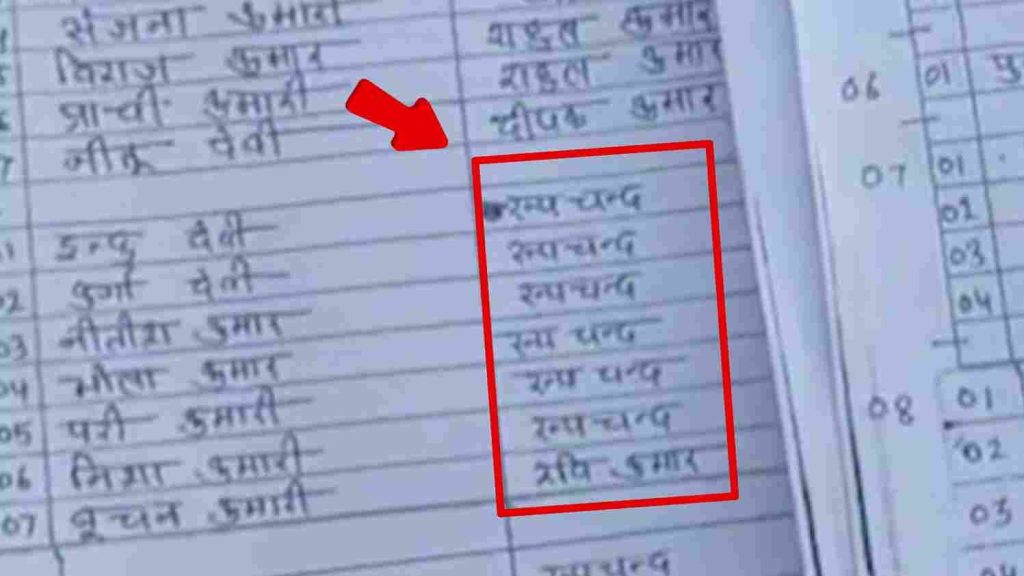 संजना कुमारी राहुल कुमार
5 विराज कुमार राहुल कुमार
6 प्राची कुमारी दीपक कुमार
7 नीतू देवी
01 इन्दु देवी रूपचन्द
02 दुर्गा देवी रूपचन्द
03 नीतीश कुमार रूपचन्द
04 भोला कुमार रूप चन्द
05 परी कुमारी रूपचन्द
06 निशा कुमारी रूपचन्द
07 कुमारी रवि कुमार
रूपचन्द
06 01
07 01
02
03
04
08 01
02
03
04